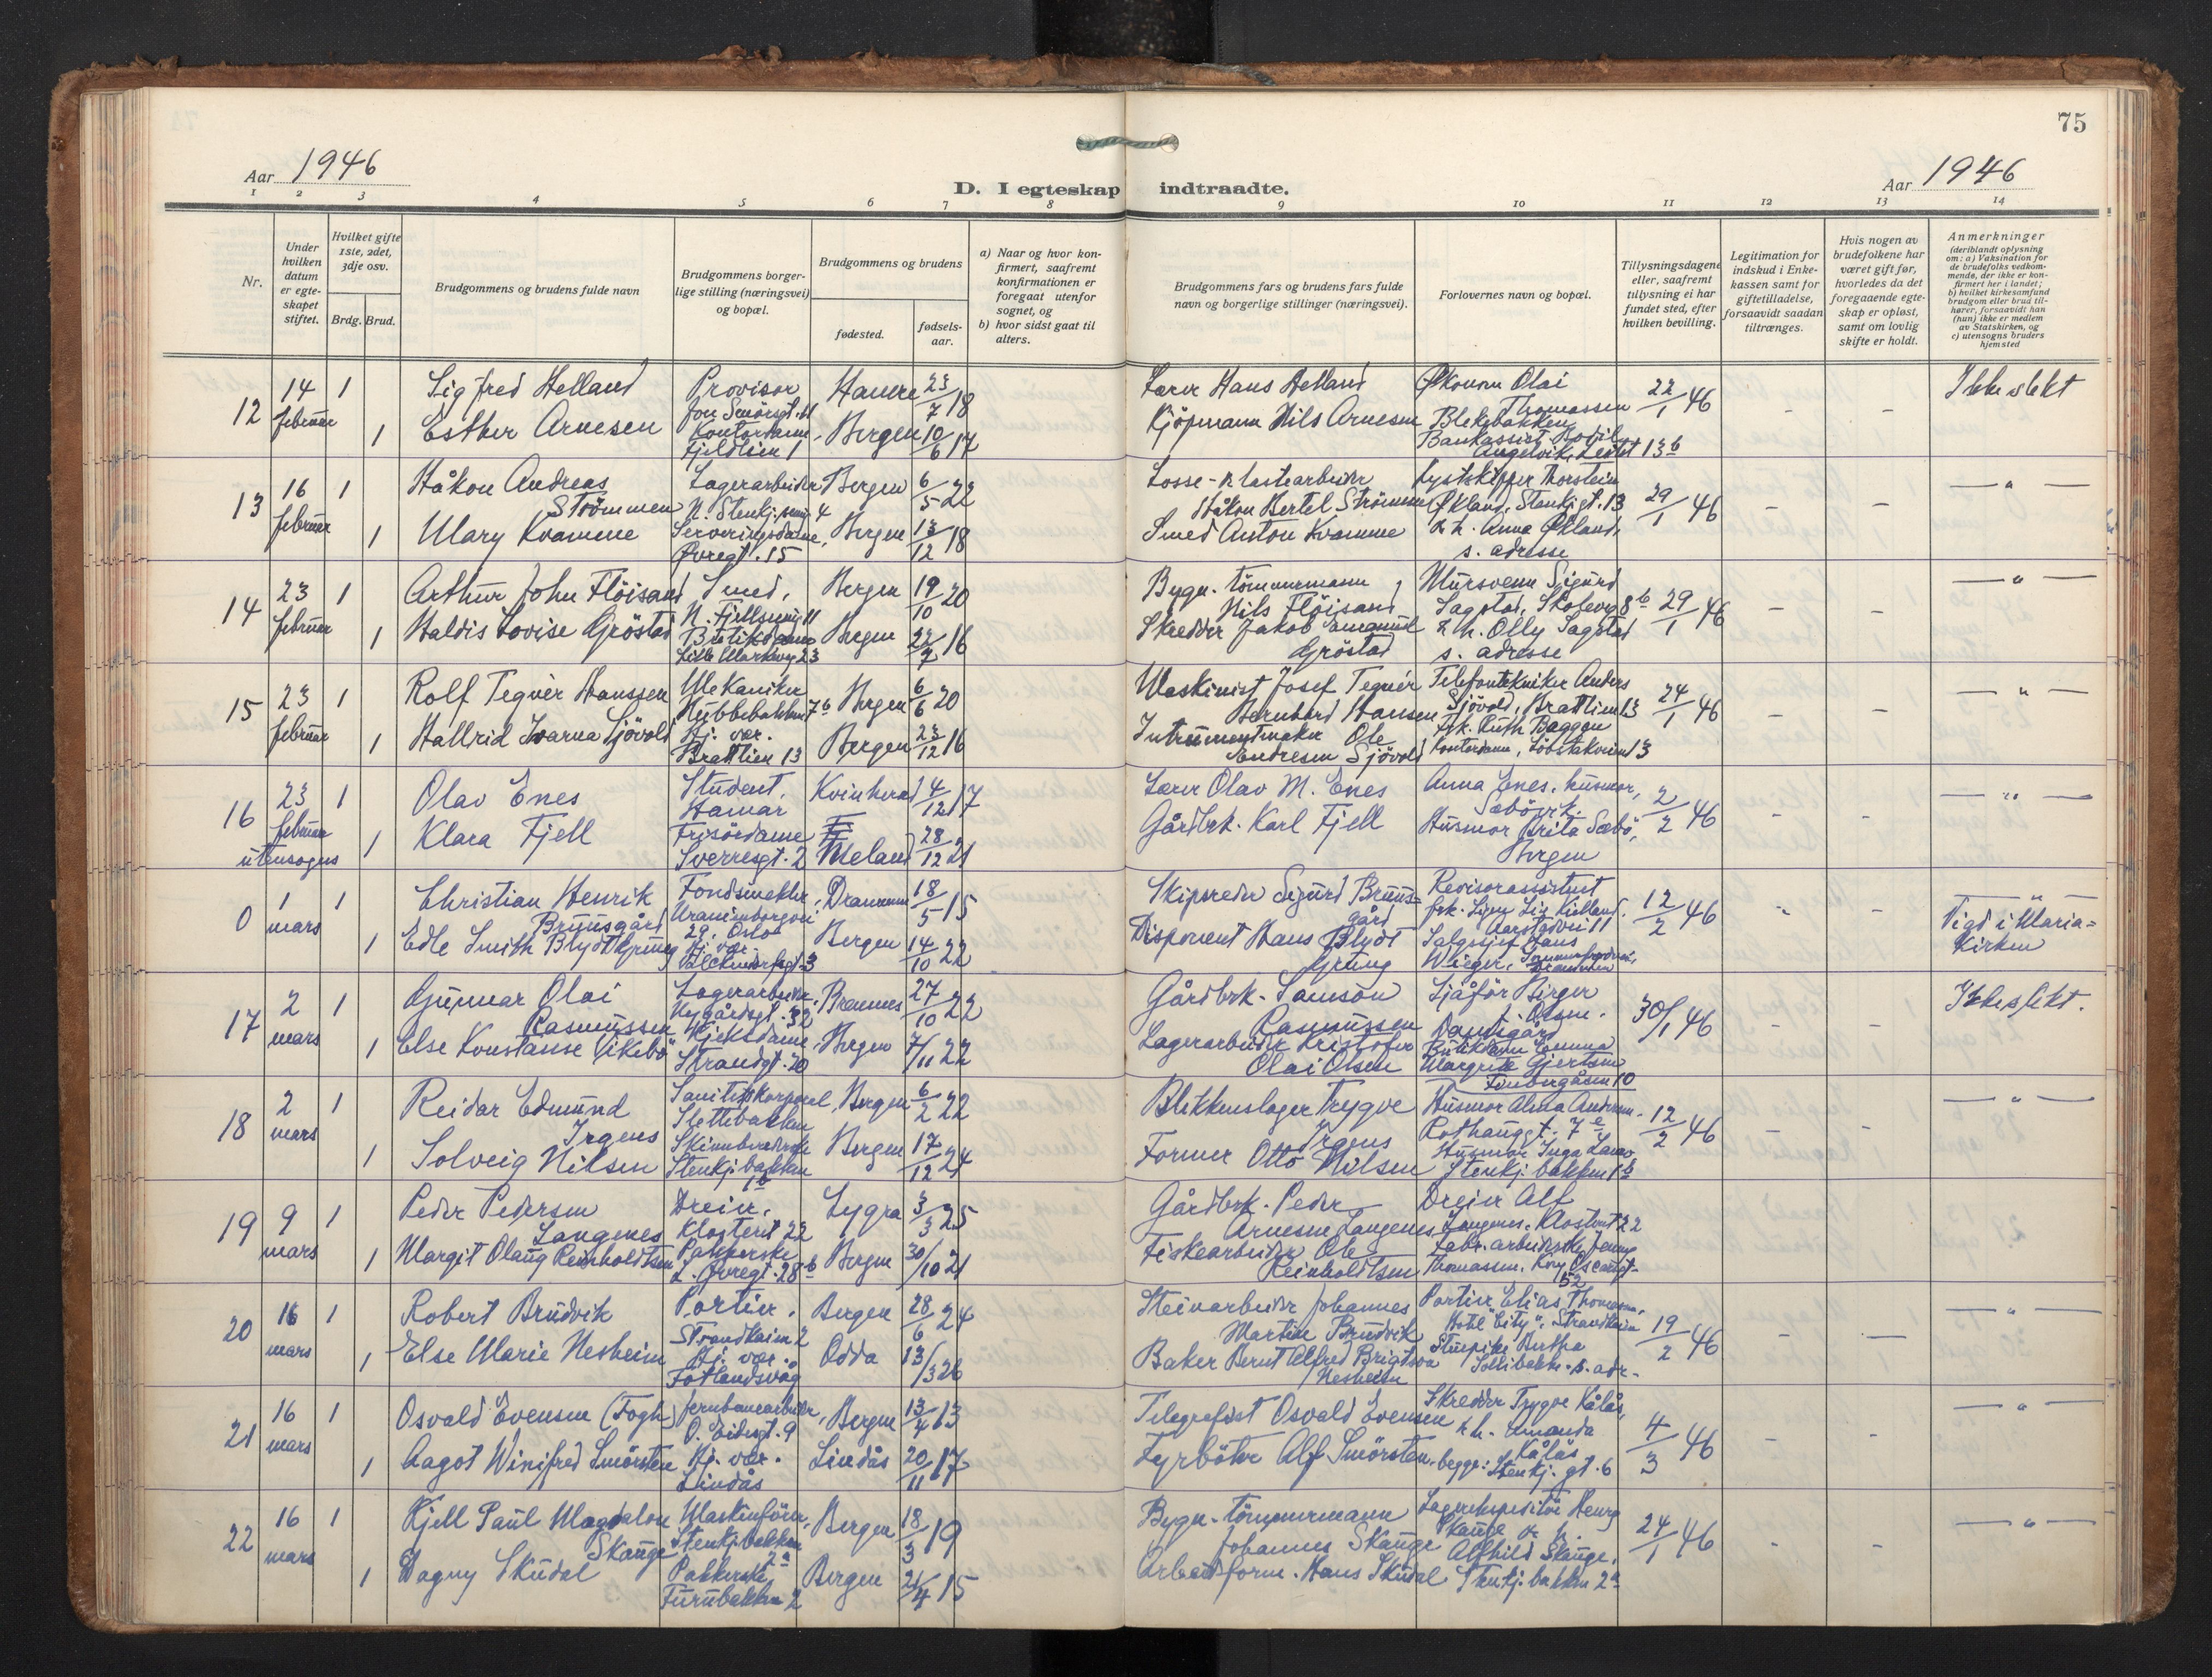 75
Aar 1946
D. I egteskap indtraadte.
Aar 1946
1 2 3 4 5 6 7 8 9 10 11 12 13 14
Nr.
Under hvilken datum er egteskapet stiftet.
Hvilket gifte 1ste, 2det, 3dje osv.
Brdg. Brud.
Brudgommens og brudens fulde navn
Brudgommens borgerlige stilling (næringsvei) og bopæl.
Brudgommens og brudens
fødested.
fødselsaar.
a) Naar og hvor konfirmert, saafremt konfirmationen er foregaat utenfor sognet, og
b) hvor sidst gaat til alters.
Brudgommens fars og brudens fars fulde navn og borgerlige stillinger (næringsvei).
Forlovernes navn og bopæl.
Tillysningsdagene eller, saafremt tillysning ei har fundet sted, efter hvilken bevilling.
Legitimation for indskud i Enkekassen samt for giftetilladelse, forsaavidt saadan tiltrænges.
Hvis nogen av brudefolkene har været gift før, hvorledes da det foregaaende egteskap er opløst, samt om lovlig skifte er holdt.
Anmerkninger
(deriblandt oplysning om: a) Vaksination for de brudefolks vedkommende, der ikke er konfirmert her i landet; b) hvilket kirkesamfund brudgom eller brud tilhører, forsaavidt han (hun) ikke er medlem av Statskirken, og c) utensogns bruders hjemsted
12 14 februar 1 Sigfred Helland Provisor 23/7 18 Lærer Hans Helland Økonom Olai Thomassen 22/1 46 - - Ikke slekt
1 Esther Arnesen Kontordame, Bergen 10/6 17 Kjöpmann Nils Arnesen Blekebakken
13 16 februar 1 Håkon Andreas Strömmen Lagerarbeider Bergen 6/5 22 Losse- & lastearbeider Håkon Bertel Strömmen Thorstein Økland, Stenkj.gt. 13 29/1 46 - - — " —
1 Mary Kvamme Serveringsdame, Øvregt. 15 Bergen 13/12 18 Smed Anton Kvamme & h. Anna Økland, s. adresse
14 23 februar 1 Arthur John Flöisand Smed, Bergen 19/10 20 Bygn. tömmermann Nils Flöisand Mursvenn Sigurd Sagstad, Skolevg 8b 29/1 46 - - — " —
1 Haldis Lovise Gröstad Butikdame Lille Markevg 23 Bergen 22/7 16 Skredder Jakob Emanuel Gröstad & h. Olly Sagstad s. adresse
15 23 februar 1 Rolf Tegnèr Hanssen Mekaniker Nubbebakken 7b Bergen 6/6 20 Maskinist Josef Tegnér Bernhard Hansen Telefontekniker Anders Sjövold, Brattlien 13 24/1 46 - - — " —
1 Hallrid Ivarna Sjövold Hj. vær. Brattlien 13 Bergen 23/12 16 Intrumentmaker Ole Andresen Sjövold Frk. Ruth Baggen
16 23 februar utensogns 1 Olav Enes Student, Hamar Kvinherad 4/12 17 Lærer Olav M. Enes Anna Enes, husmor, Sæbövik 2/2 46 - - — " —
1 Klara Fjell Frisördame Sverresgt. 2 Meland 28/12 21 Gårdbrk. Karl Fjell Husmor Brita Sæbö, Bergen
0 1 mars 1 Christian Henrik Bruusgård Fondsmekler, 29, Oslo Drammen 18/5 15 Skipsreder Sigurd Bruusgård Revisorassistent 12/2 46 - - Viet i Mariakirken
1 Edle Smith Blydt Grung Hj. vær. Bergen 14/10 22 Disponent Hans Blydt Grung Salgssjef Hans
17 2 mars 1 Gunnar Olai Rasmussen Lagerarbeider, Nygårdsgt. 32 Bremnes 27/10 22 Gårdbrk. Samson Rasmussen Sjåför Birger Olsen, 30/1 46 - - Ikke slekt.
1 Else Konstanse Vikebö Kjeksdame, Strandgt. 20 Bergen 7/11 22 Lagerarbeider Kristofer Olai Olsen Butikdame Emma Margrete Gjertsen
18 2 mars 1 Reidar Edmund Irgens Sanitetskorporal, Slettebakken Bergen 6/2 22 Blikkenslager Trygve Irgens Husmor Alma Andersen. Rothauggt. 7e 12/2 46 - - — " —
1 Solveig Nilsen Stenkj.bakken 1b Bergen 17/12 24 Former Otto Nilsen Husmor Inga Stenkj. bakken 1b
19 9 mars 1 Peder Pedersen Langenes Dreier, Klosteret 22 Lygra 3/3 25 Gårdbrk. Peder Arnesen Langenes Dreier Alf Langenes, Klosteret 22
1 Margit Olaug Reinholdtsen Pakkerske L. Øvregt. 28b Bergen 30/10 21 Fiskearbeider Ole Reinholdtsen Fabr.arbeiderske Jenny Thomassen, Kong Oscarsgt. 52
20 16 mars 1 Robert Brudvik Portier, Strandkaien 2 Bergen 28/6 24 Steinarbeider Johannes Martin Brudvik Portier Elias Thomassen, Hotel "City", Strandkaien 19/2 46 - - — " —
1 Else Marie Nesheim Hj. vær. Fotlandsvåg Odda 13/3 26 Baker Bernt Alfred Brigtson Nesheim Stuepike Bertha s. adr.
21 16 mars 1 Osvald Evensen (Fogh) Jernbanearbeider, O. Eidesgt. 9 Bergen 13/4 13 Telegrafist Osvald Evensen Skredder Trygve Kålås, 4/3 46 - - — " —
1 Aagot Winifred Smörsten Hj. vær. Lindås Lindås 20/11 17 Fyrböter Alf Smörsten & h. Amanda Kålås begge: Stenkj. gt. 6
22 16 mars 1 Kjell Paul Magdalon Skauge Maskinförer, Stenkj.bakken 2a Bergen 18/3 19 Bygn. tömmermann Johannes Skauge Lagerekspeditör Henry Skauge & h. 24/1 46 - - — " —
1 Dagny Skudal Pakkerske Furubakken 2 Bergen 21/4 15 Arbeidform. Hans Skudal Alfhild Skauge, Stenkj. bakken 2a